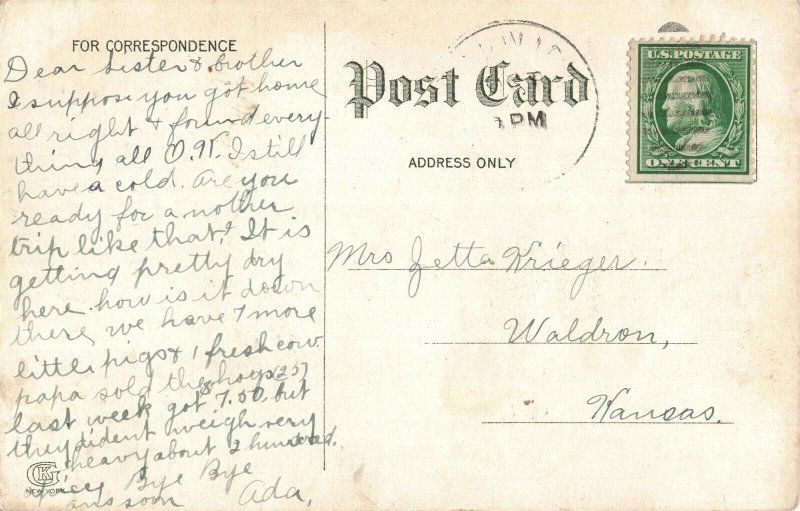 FOR CORRESPONDENCE
Dear Sister & brother
I suppose you got home
all right & found every-
thing all O.K. I still
have a cold. are you
ready for a nother
trip like that? It is
getting pretty dry
here. how is it down
there, we have 7 more
little pigs & 1 fresh cow
papa sold the hogs (25)
last week got 7.50 but
they dident weigh very
heavy about 2 hundred.
Bye Bye
ans soon Ada,
CKG
NEW YORK
Post Card
PM
ADDRESS ONLY
U.S. POSTAGE
ONE CENT
Mrs Zetta Krieger.
Waldron,
Kansas.